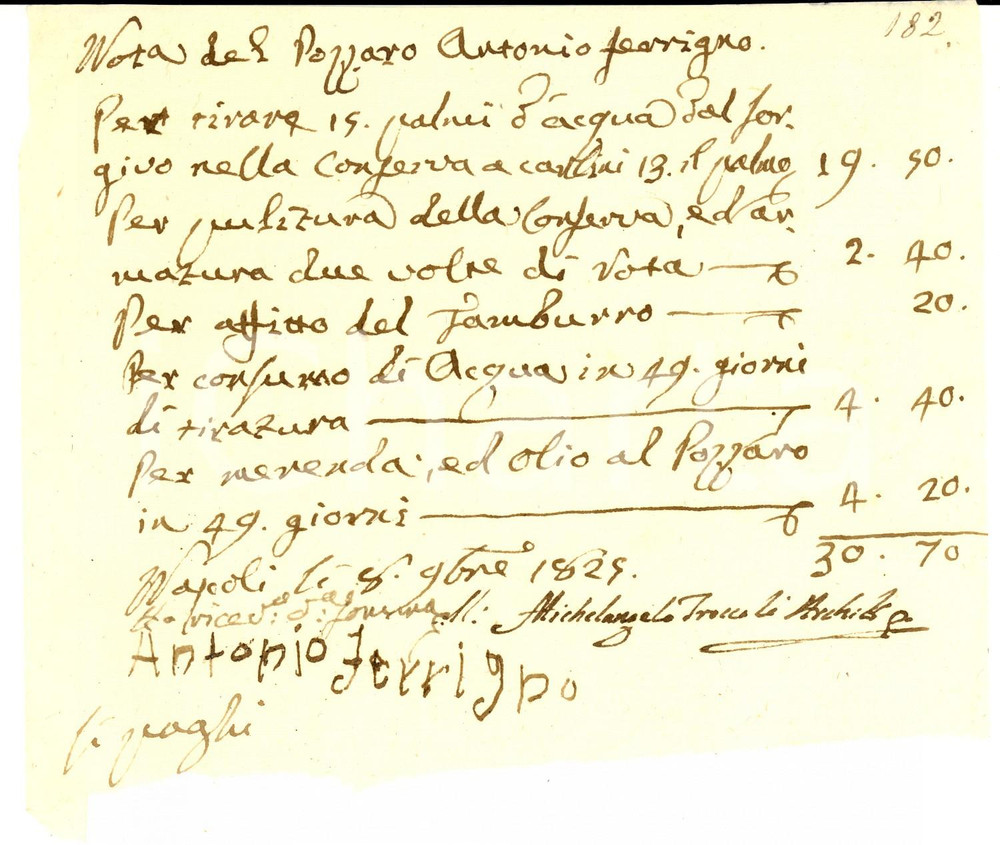 182
Nota del Pozzaro Antonio Ferrigno.
Per tirare 15. palmi d'acqua dal sor-
givo nella Conserva a carlini 13. il palmo 19. 50.
Per pulitura della Conserva, ed ar-
matura due volte di rota 2. 40.
Per affitto del Tamburro 20.
Per consumo di Acqua in 49. giorni
di tiratura 4. 40.
Per merenda, ed olio al Pozzaro
in 49. giorni 4. 20.
30. 70
Napoli li 8. 9bre 1825.
Michelangelo Troccoli Archit.
Antonio Ferrigno
si paghi